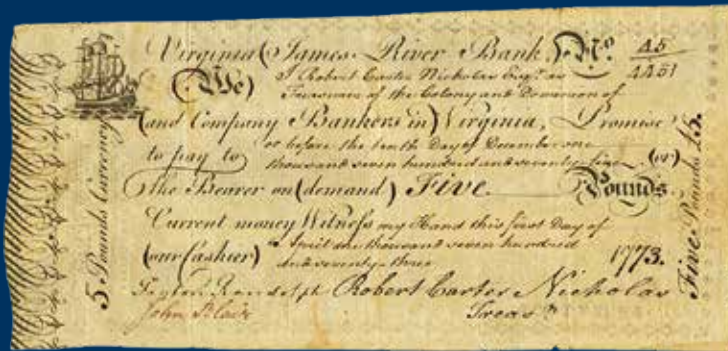 Virginia (James River Bank.) No. 45
4451
(We) I Robert Carter Nicholas Esqr. as
Treasurer of the Colony and Dominion of
(and Company Bankers in) Virginia, Promise
to pay to or before the tenth Day of December one
thousand seven hundred and seventy-five (or)
the Bearer on (demand) Five Pounds
Current money Witness my Hand this first Day of
(our Cashier) April one thousand seven hundred
and seventy-three 1773.
Peyton Randolph Robert Carter Nicholas
John Blair Treasr.
5 Pounds Currency
Five Pounds £5.